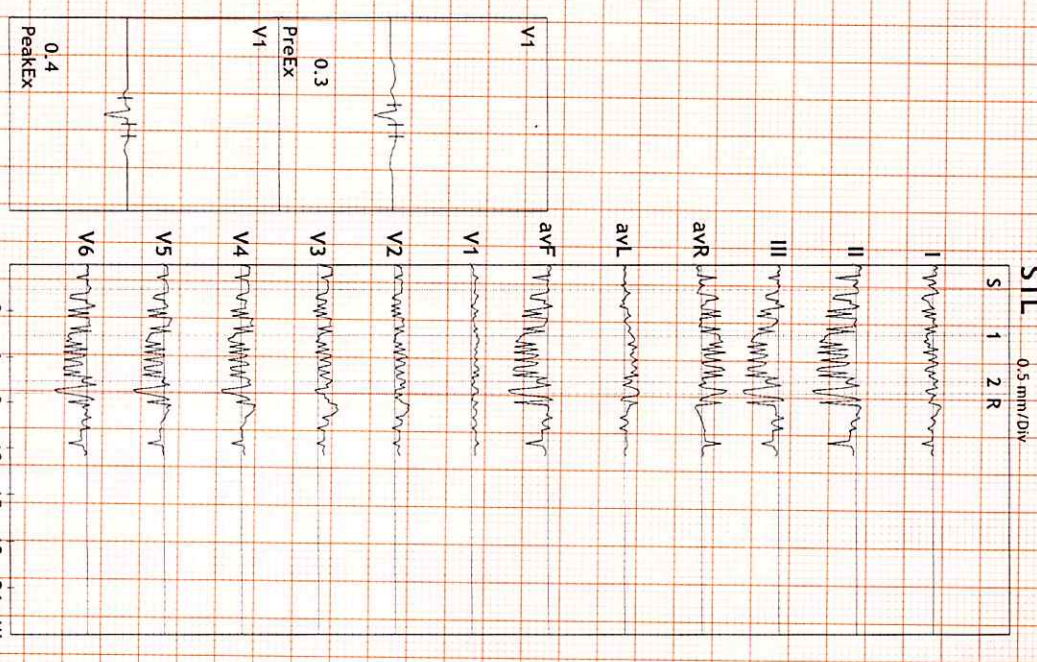 STL 0.5 mm/Div
S 1 2 R
I
II
III
avR
avL
avF
V1
V2
V3
V4
V5
V6
V1
0.3
PreEx
V1
0.4
PeakEx